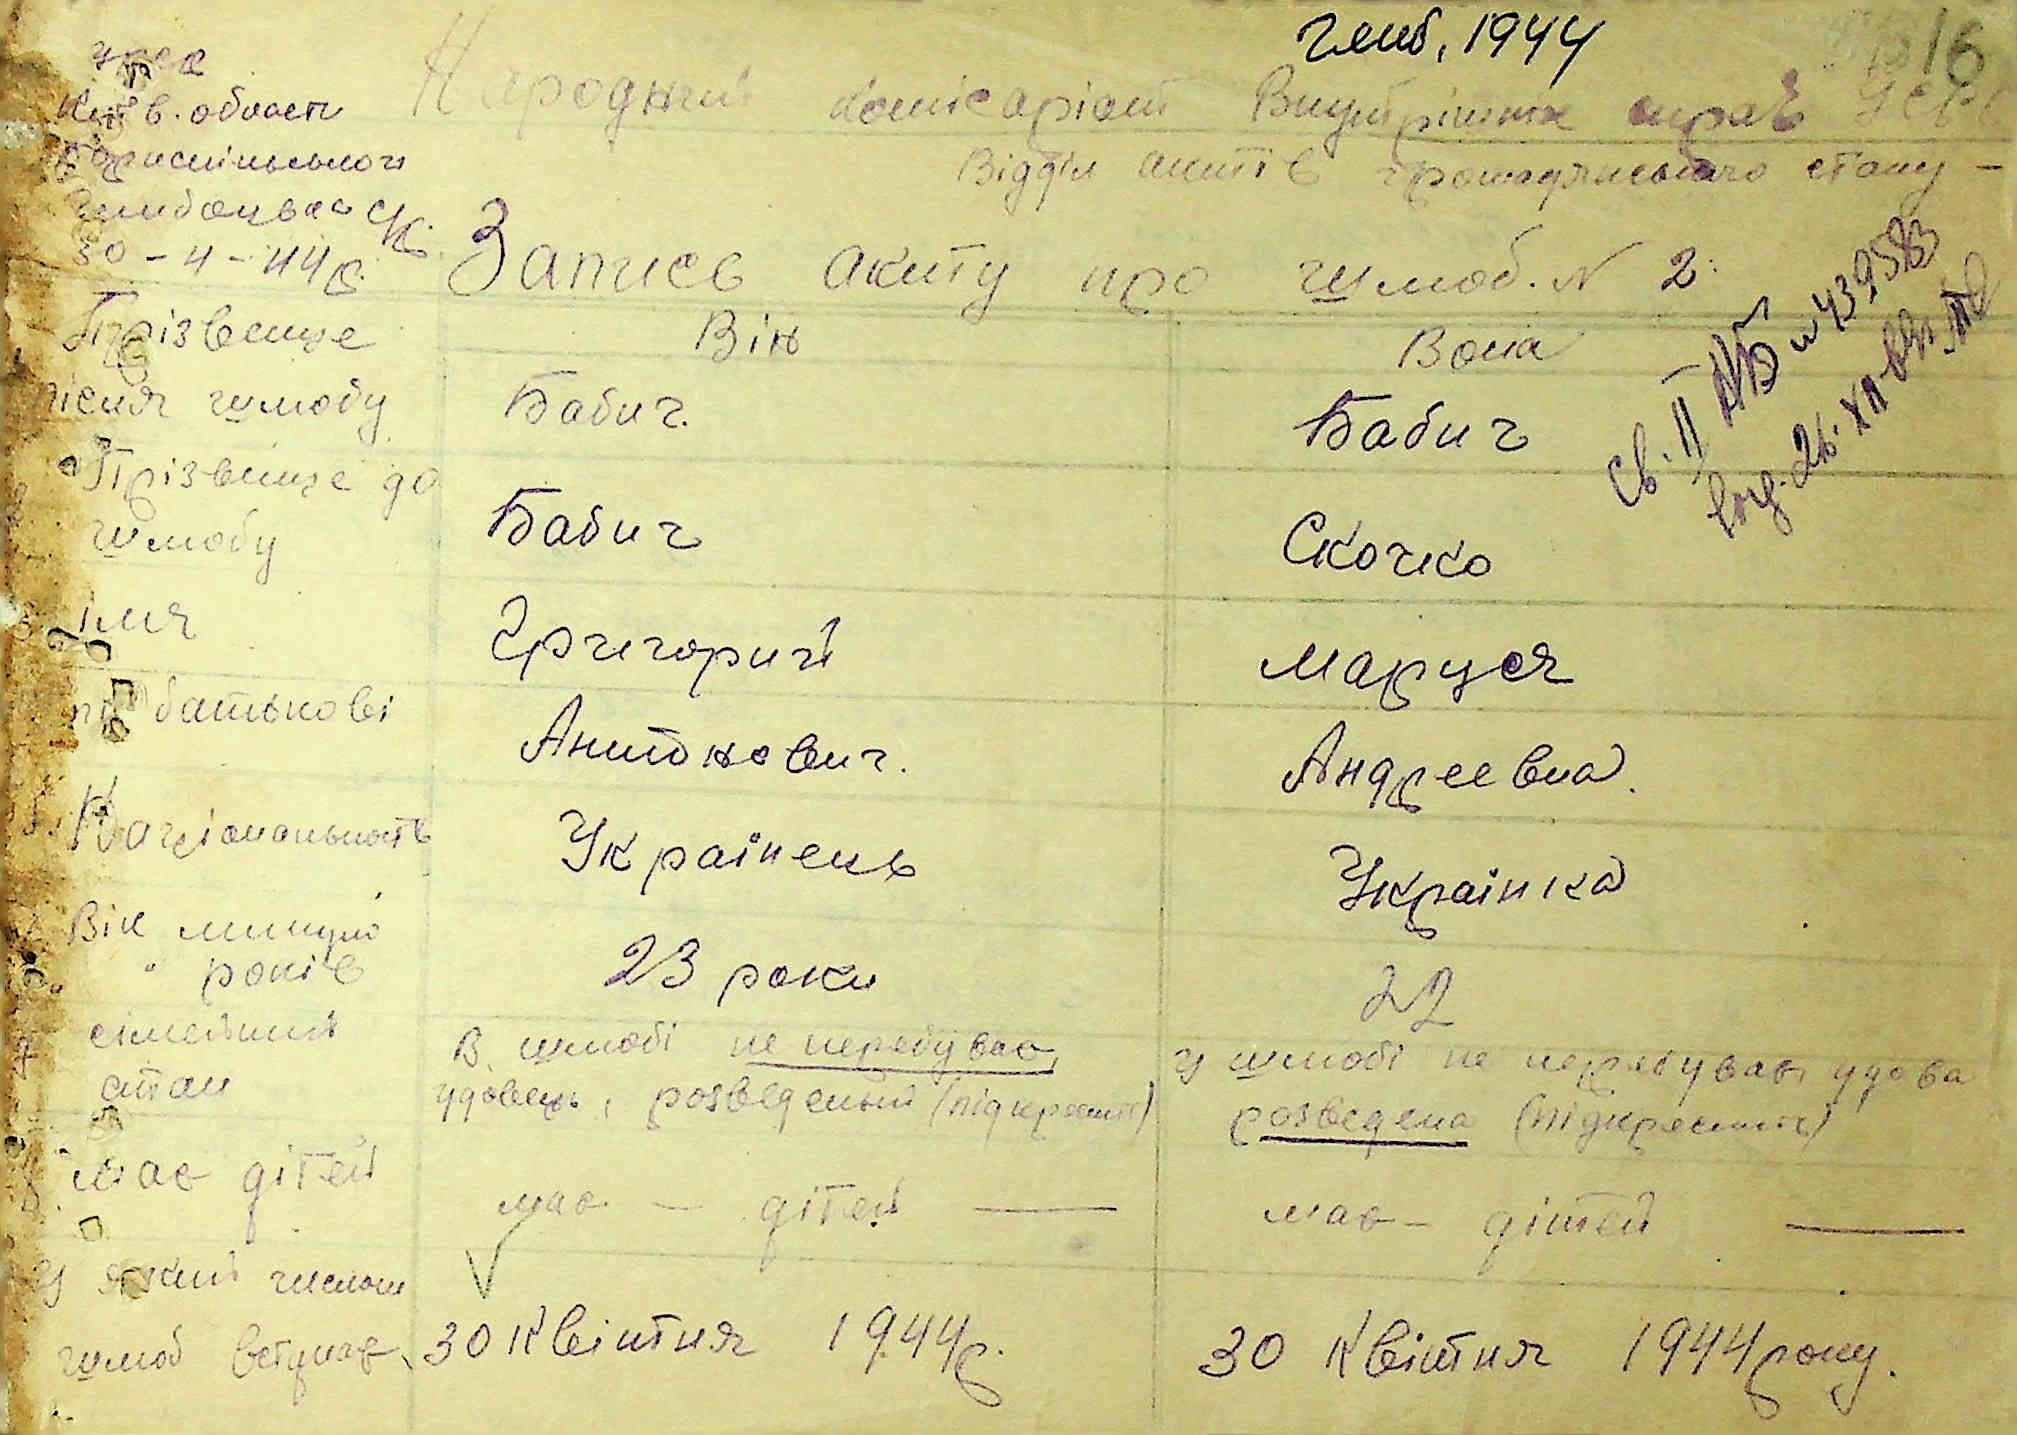 шлюб, 1944
16
УРСР
Київ. області
Бориспільського
30-4-44р.
Народний комісаріат Внутрішніх справ УСРР
Відділ актів громадянського стану -
Запись акту про шлюб. N 2
Св. II
Прізвеще після шлюбу
Він
Вона
Бабич.
Бабич
Прізвеще до шлюбу
Бабич
Скочко
імя
Григорий
Маруся
по батькові
Антонович.
Андреевна.
Національність
Українець
Українка
Вік минуло років
23 роки
22
сімейний стан
В шлюбі не перебував, удовець, розведений (підкреслить)
У шлюбі не перебував, удова розведена (підкреслить)
має дітей
має — дітей —
має - дітей —
У який числом шлюб вступає
30 Квітня 1944р.
30 Квітня 1944 року.